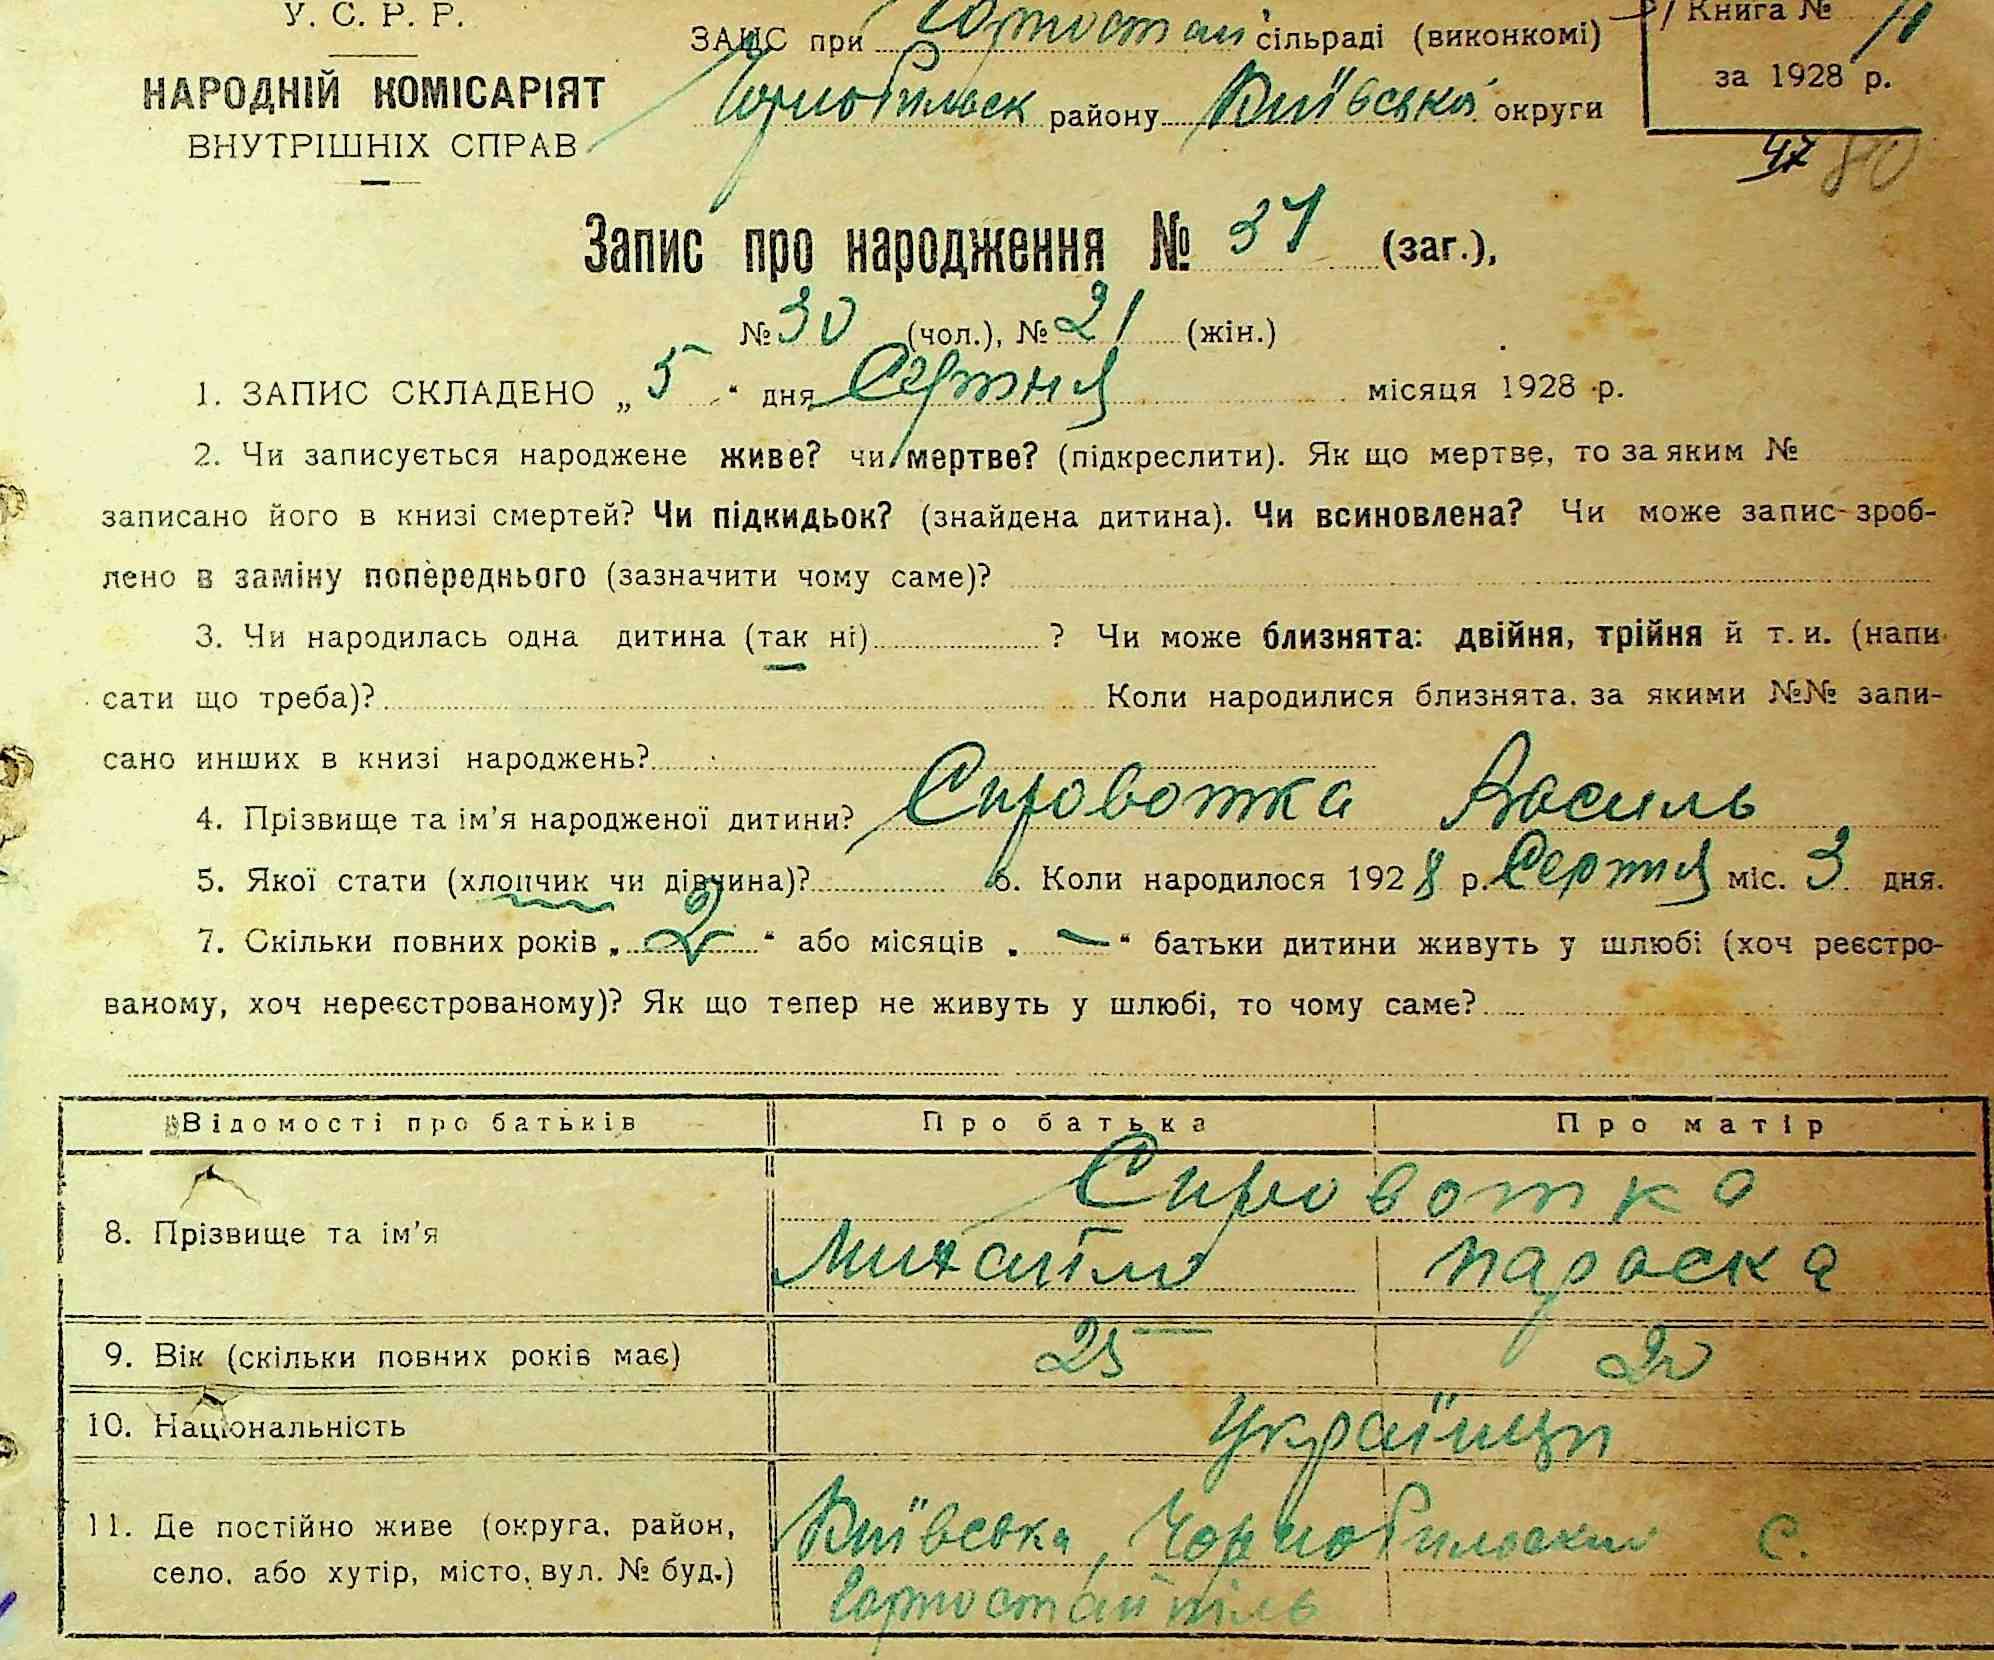 У. С. Р. Р.
НАРОДНІЙ КОМІСАРІЯТ
ВНУТРІШНІХ СПРАВ
ЗАЦС при Гориостай сільраді (виконкомі)
Чорнобильск району Київської округи
Книга №
за 1928 р.
47 80
Запис про народження № 37 (заг.),
№ 30 (чол.), № 21 (жін.)
1. ЗАПИС СКЛАДЕНО „ 5 “ дня Серпня місяця 1928 р.
2. Чи записується народжене живе? чи мертве? (підкреслити). Як що мертве, то за яким №
записано його в книзі смертей? Чи підкидьок? (знайдена дитина). Чи всиновлена? Чи може запис зроб-
лено в заміну попереднього (зазначити чому саме)?
3. Чи народилась одна дитина (так ні) ? Чи може близнята: двійня, трійня й т. и. (напи
сати що треба)? Коли народилися близнята. за якими №№ запи-
сано инших в книзі народжень?
4. Прізвище та ім’я народженої дитини? Сировотка Василь
5. Якої стати (хлопчик чи дівчина)? 6. Коли народилося 1928 р. Серпня міс. 3 дня.
7. Скільки повних років „ 2 “ або місяців „ — “ батьки дитини живуть у шлюбі (хоч реєстро-
ваному, хоч нереєстрованому)? Як що тепер не живуть у шлюбі, то чому саме?
Відомості про батьків Про батька Про матір
Сировотка
8. Прізвище та ім’я Михайло Параска
9. Вік (скільки повних років має) 25 20
10. Національність Українци
11. Де постійно живе (округа, район, Київська, Чорнобильский с.
село, або хутір, місто, вул. № буд.) Горностайпіль